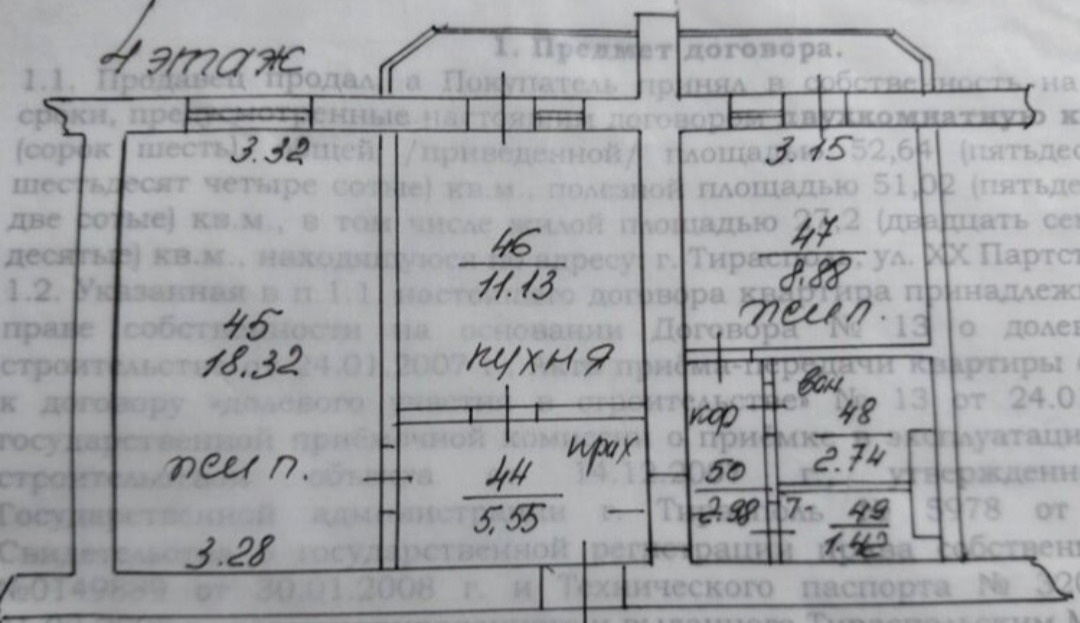 4 этаж
1. Предмет договора.
1.1. Продавец продал, а Покупатель принял в собственность на
сроки, предусмотренные настоящим договором двухкомнатную к
(сорок шесть) общей /приведенной/ площадью 52,64 (пятьдес
шестьдесят четыре сотые) кв.м., полезной площадью 51,02 (пятьде
две сотые) кв.м., в том числе жилой площадью 27,2 (двадцать сем
десятые) кв.м., находящуюся по адресу: г. Тирасполь, ул. XX Партсъ
1.2. Указанная в п.1.1. настоящего договора квартира принадлежи
праве собственности на основании Договора № 13 о долев
строительстве 24.01.2007 приёма-передачи квартиры
к договору «долевого участия в строительстве» № 13 от 24.0
государственной приёмочной комиссии о приёмке в эксплуатаци
строительством объекта 14.12. утвержденн
Государственной администрации г. Тирасполь 5978 от
Свидетельства о государственной регистрации права собственн
№0149889 от 30.01.2008 г. и Технического паспорта № 320
3.32
3.15
46
11.13
47
8.88
жил.
45
18.32
кухня
кор
ван
48
2.74
жил п.
прих
44
5.55
50
2.98
Т-
49
1.42
3.28